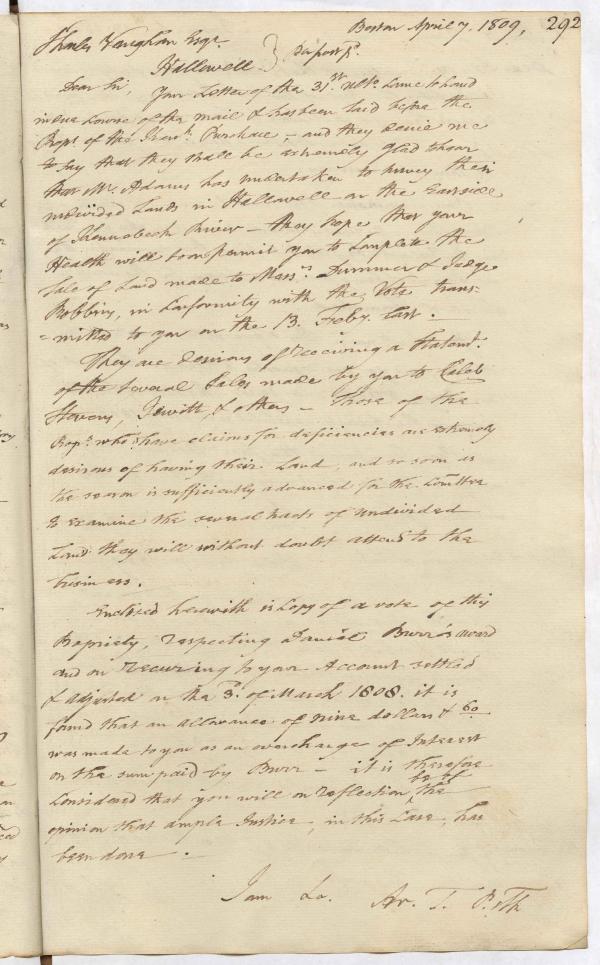 Boston April 7. 1809, 292
Charles Vaughan Esqr.
Hallowell } Per post pd.
Dear Sir, Your Letter of the 31st. ulto. came to hand
in due course of the mail & has been laid before the
Propt. of the Kenn. Purchase; and they desire me
to say that they shall be extremely glad to hear
that Mr. Adams has undertaken to survey their
undivided Lands in Hallowell on the East side
of Kennebeck River – they hope that your
Health will soon permit you to Complete the
Sale of Land made to Messrs. Dummer & Judge
Robbins, in Conformity with the Vote trans-
=mitted to you on the 13. Feby. last.
They are desirous of receiving a Statemt.
of the several Sales made by you to Caleb
Stevens, Jewitt, & others – Those of the
Propt. who have claims for deficiencies are extremely
desirous of having their Land, and so soon as
the season is sufficiently advanced for the Comttee
to examine the several tracts of undivided
Land they will without doubt attend to the
business.
Enclosed herewith is Copy of a vote of this
Propriety, respecting Daniel Burr's award
and on recurring to your Account settled
& adjusted on the 3d. of March 1808. it is
found that an allowance of nine dollars & 60
was made to you as an overcharge of Interest
on the sum paid by Burr – it is therefore
Considered that you will on reflection be of the
opinion that ample Justice, in this Case, has
been done.
I am &c. Ar. T.